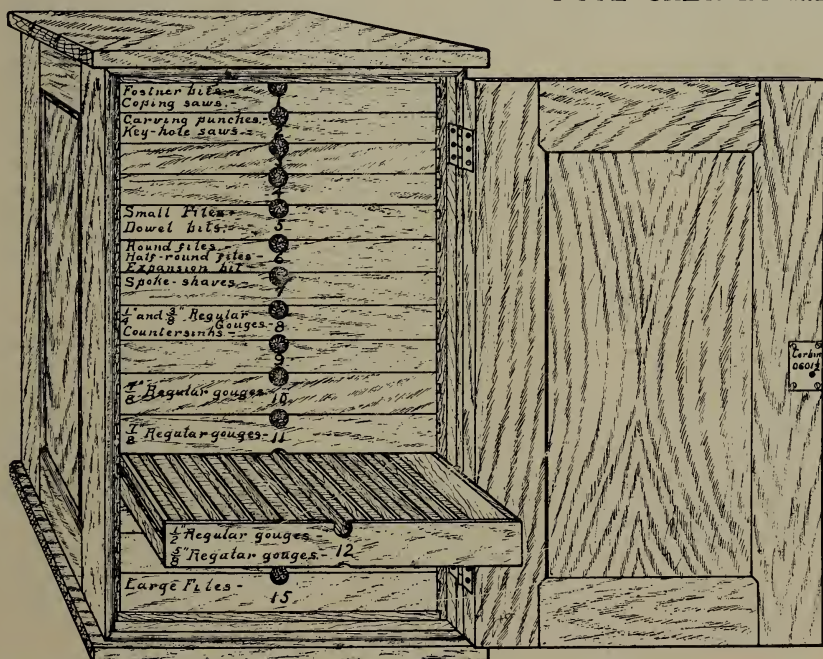 Fostner bits-
Coping saws.
1
Carving punches-
Key-hole saws-
Small Files-
Dowel bits-
5
Round files-
Half-round files-
6
Expansion bit
Spoke-shaves-
7
1/4" and 3/8" Regular
Gouges-
8
Countersinks-
9
Regular gouges-
10
Regular gouges-
11
1/2" Regular gouges-
5/8" Regular gouges-
12
Large Files-
15
Corbin
0601½